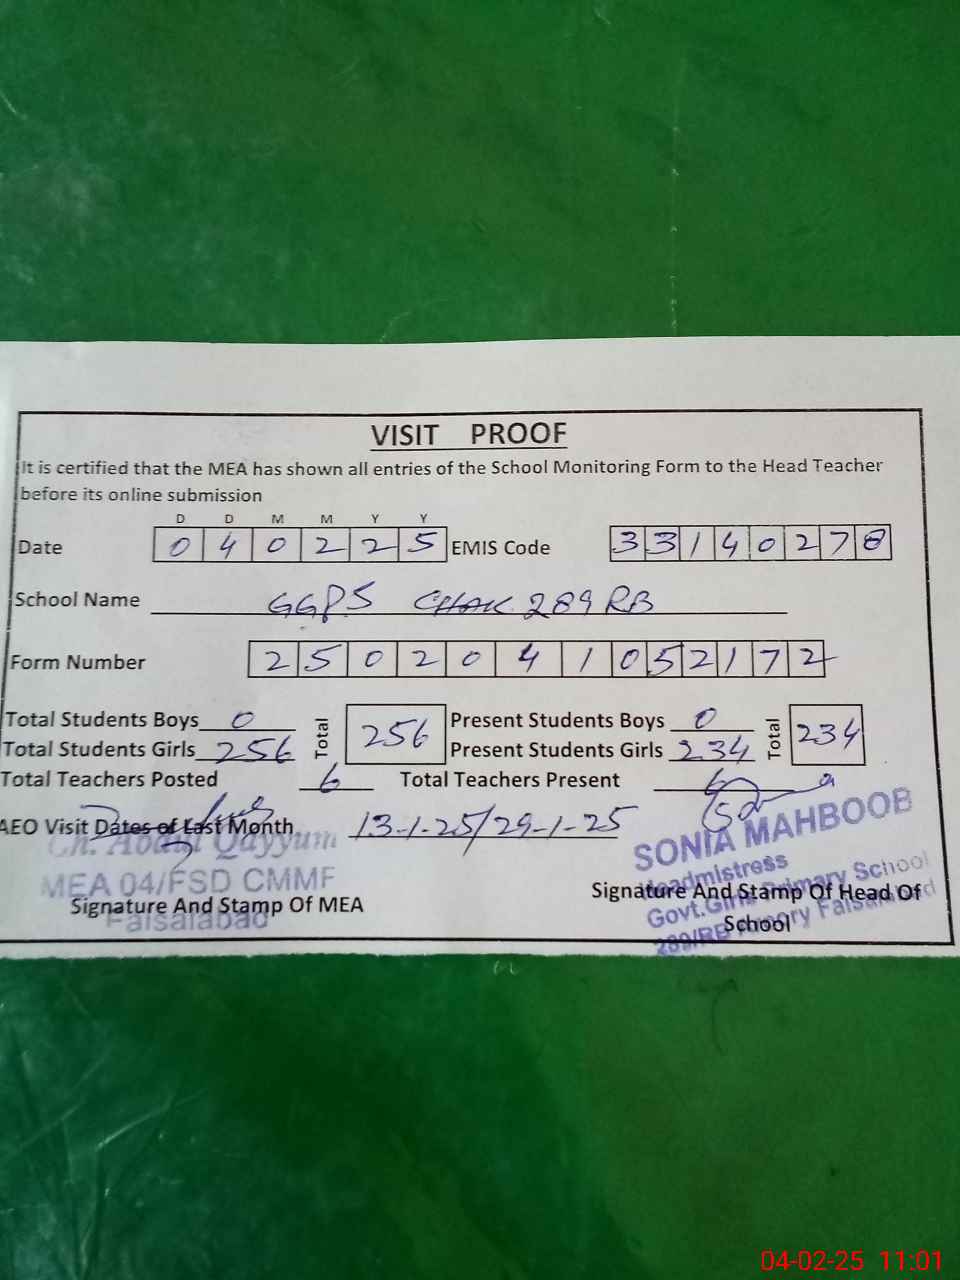 VISIT PROOF
It is certified that the MEA has shown all entries of the School Monitoring Form to the Head Teacher
before its online submission
D D M M Y Y
Date 0 4 0 2 2 5 EMIS Code 3 3 1 4 0 2 7 8
School Name GGPS CHAK 289 RB
Form Number 2 5 0 2 0 4 1 0 5 2 1 7 2
Total Students Boys 0 Total 256 Present Students Boys 0 Total 234
Total Students Girls 256 Present Students Girls 234
Total Teachers Posted 6 Total Teachers Present 6
AEO Visit Dates of Last Month 13-1-25/29-1-25
Ch. Abdul Qayyum
MEA 04/FSD CMMF
Faisalabad
Signature And Stamp Of MEA
SONIA MAHBOOB
Headmistress
Govt.Girls Primary School
289/RB Faisalabad
Signature And Stamp Of Head Of
School
04-02-25 11:01